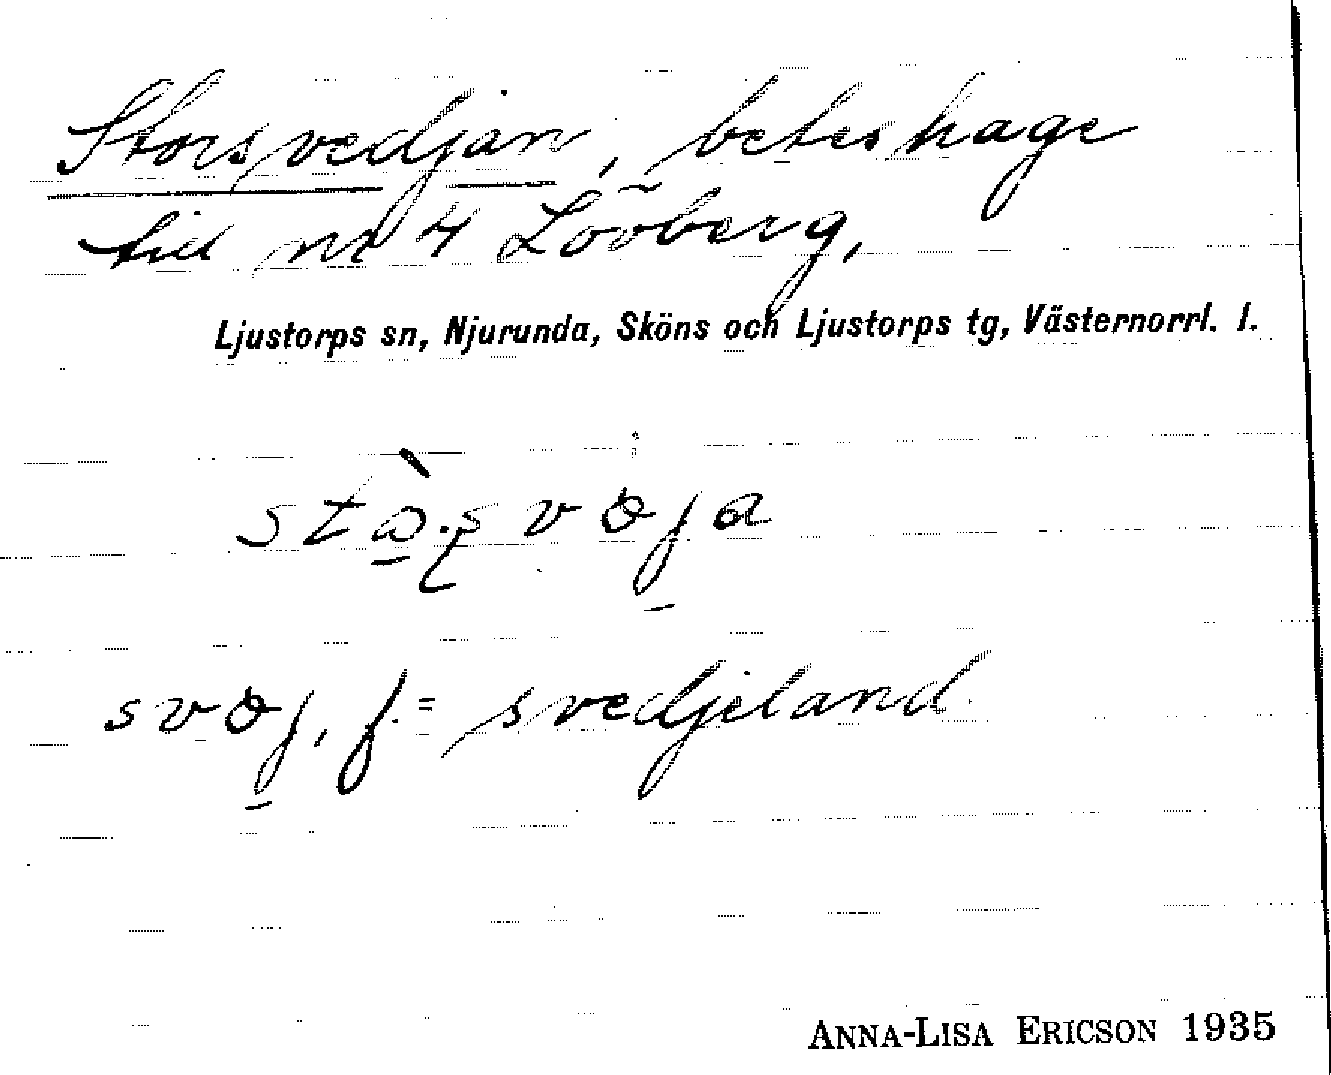 Storsvedjan, beteshage
till nr 4 Lövberg,
Ljustorps sn, Njurunda, Sköns och Ljustorps tg, Västernorrl. l.
f. = svedjeland.
ANNA-LISA ERICSON 1935